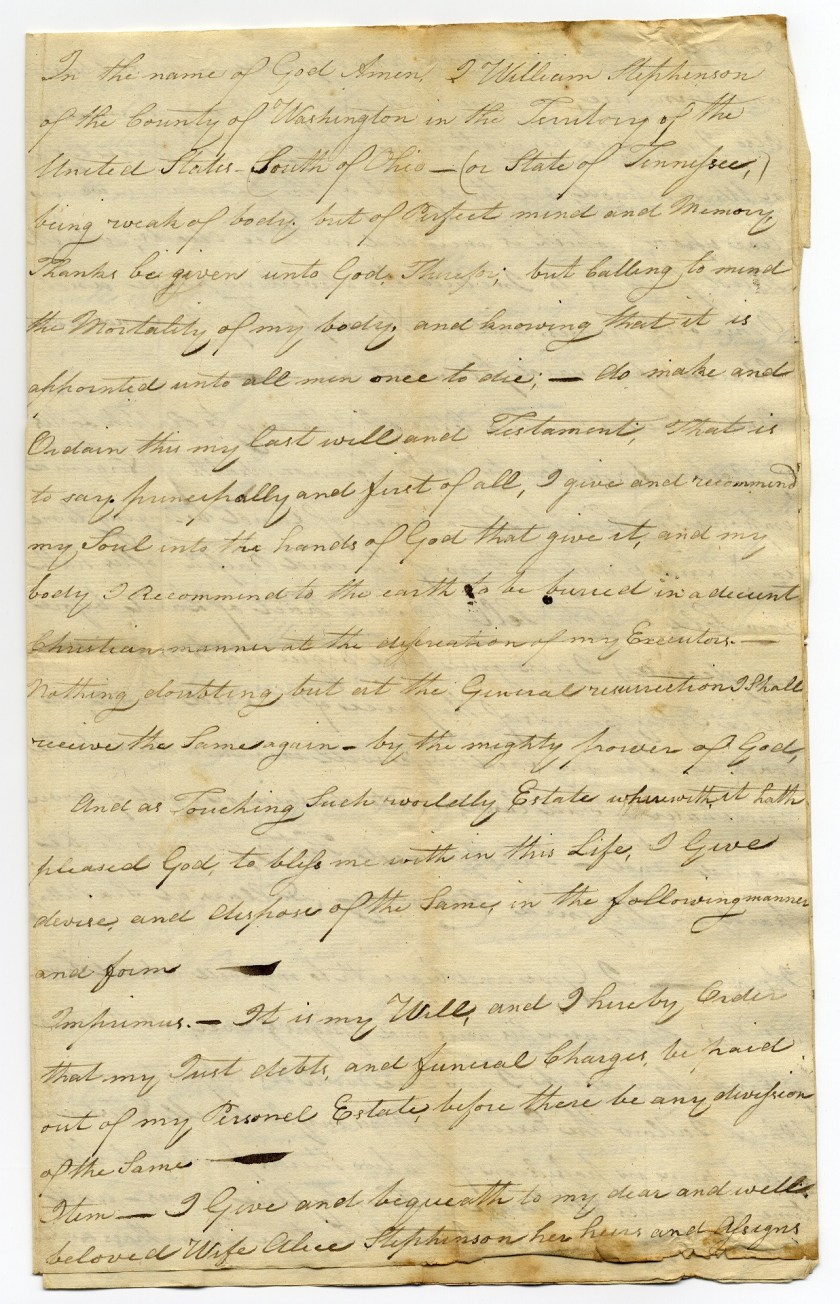 In the name of God Amen, I William Stephenson
of the County of Washington in the Territory of the
United States - South of Ohio - (or State of Tennessee,)
being weak of body, but of Perfect mind and Memory,
Thanks be given unto God, Therefor; but Calling to mind
the Mortality of my body, and knowing that it is
appointed unto all men once to die; — do make and
Ordain this my last will and Testament, That is
to say, principally and first of all, I give and recommend
my Soul into the hands of God that give it, and my
body I Recommend to the earth to be buried in a decent
Christian manner at the discreation of my Executors. —
Nothing doubting but at the General resurrection I Shall
receive the Same again - by the mighty power of God,
And as Touching Such worldly Estate wherewith it hath
pleased God, to bless me with in this Life, I Give
devise, and dispose of the Same, in the following manner
and form —
Imprimus. — It is my Will, and I hereby Order
that my Just debts, and funeral Charges, be paid
out of my Personel Estate, before there be any division
of the Same —
Item — I Give and bequeath to my dear and well
beloved Wife Alice Stephenson her heirs and Assigns